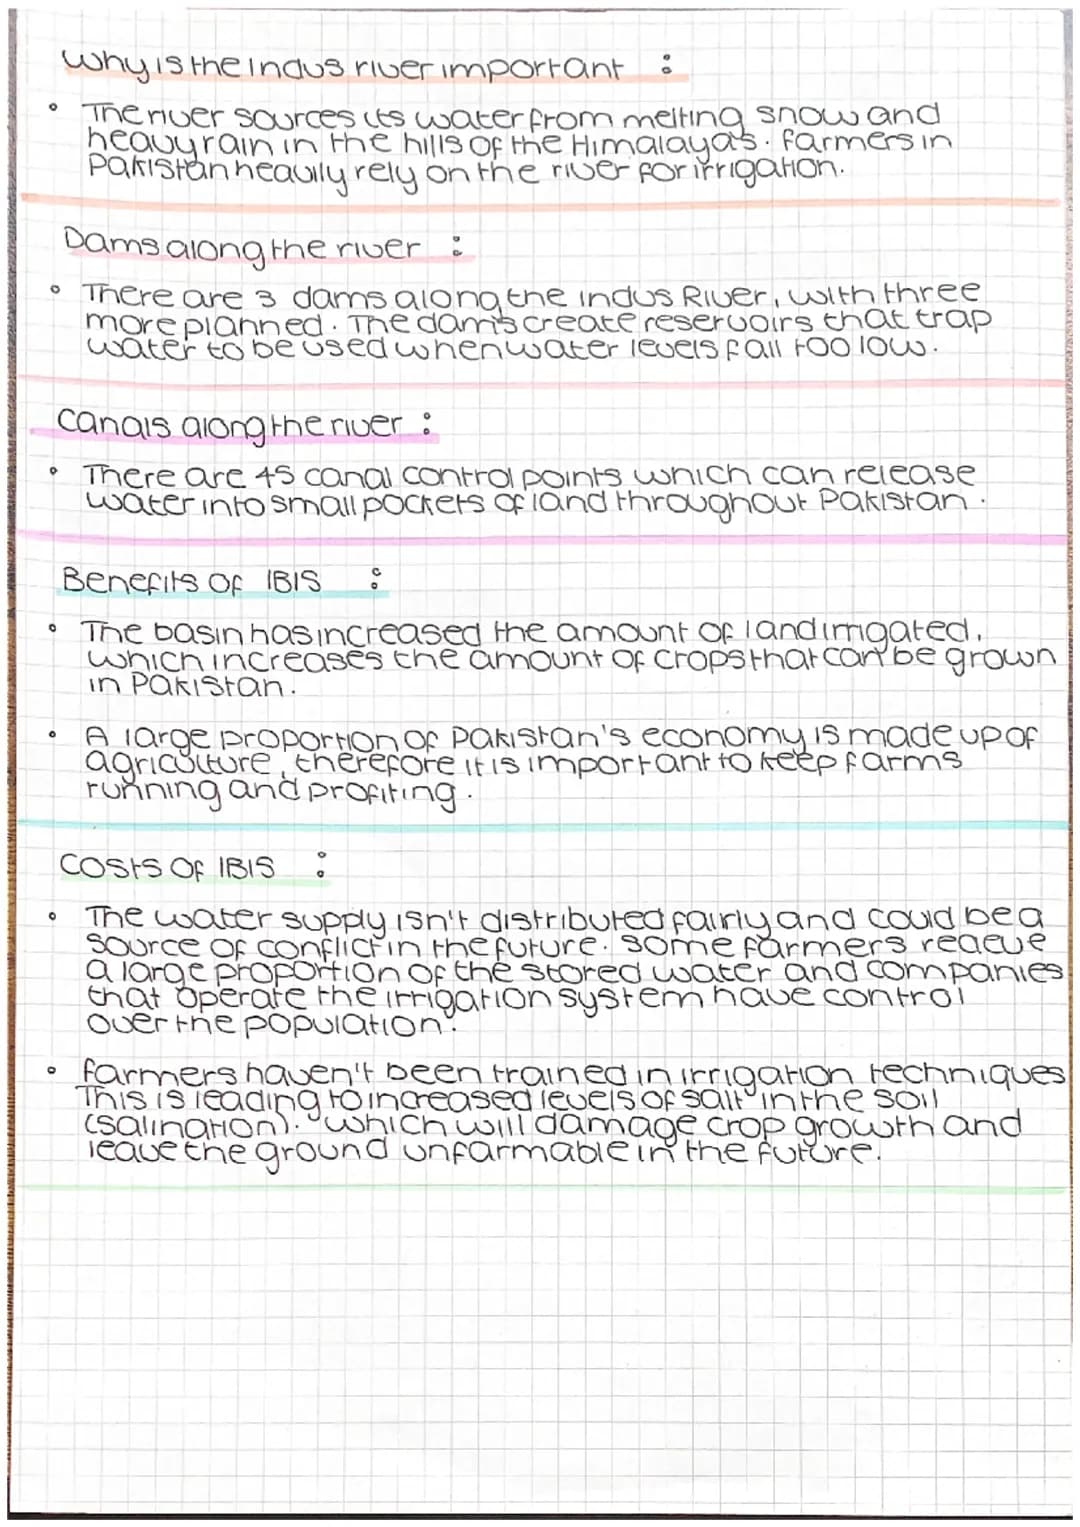 Why is the Indus river important :
• The river sources its water from melting snow and
heavy rain in the hills of the Himalaya's. farmers in
Pakistan heavily rely on the river for irrigation.
Dams along the river :
• There are 3 dams along the indus River, with three
more planned. The dams create reservoirs that trap
water to be used when water levels fall too low.
Canals along the river :
• There are 45 canal control points which can release
water into small pockets of land throughout Pakistan.
Benefits of IBIS :
• The basin has increased the amount of land irrigated,
which increases the amount of crops that can be grown
in Pakistan.
• A large proportion of Pakistan's economy is made up of
agriculture, therefore it is important to keep farms
running and profiting.
Costs of IBIS :
• The water supply isn't distributed fairly and could be a
source of conflict in the future. some farmers recieve
a large proportion of the stored water and companies
that operate the irrigation system have control
over the population.
• farmers haven't been trained in irrigation techniques
This is leading to increased levels of salt in the soil
(salination). which will damage crop growth and
leave the ground unfarmable in the future.